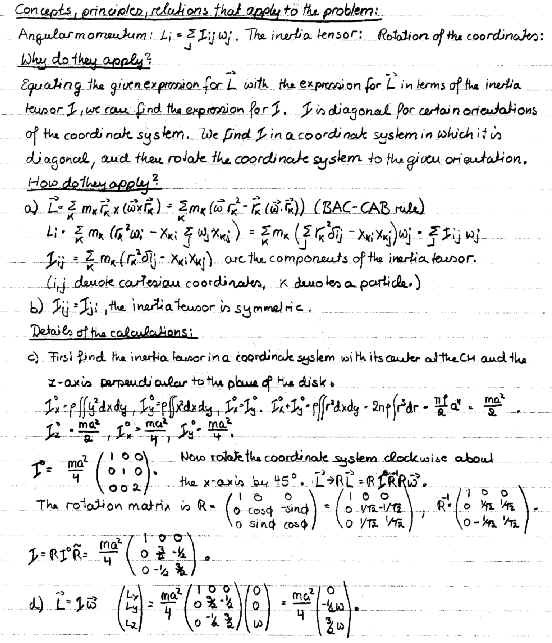 Concepts, principles, relations that apply to the problem:
Angular momentum: Li = Σj Iij ωj. The inertia tensor: Rotation of the coordinates:
Why do they apply?
Equating the given expression for L⃗ with the expression for L⃗ in terms of the inertia
tensor I, we can find the expression for I. I is diagonal for certain orientations
of the coordinate system. We find I in a coordinate system in which it is
diagonal, and then rotate the coordinate system to the given orientation.
How do they apply?
a) L⃗ = Σk mk r⃗k × (ω⃗ × r⃗k) = Σk mk (ω⃗ rk² - r⃗k (ω⃗·r⃗k)) (BAC-CAB rule)
Li = Σk mk (rk² ωi - xki Σj ωj xkj) = Σk mk (Σj rk² δij - xki xkj) ωj = Σj Iij ωj
Iij = Σk mk (rk² δij - xki xkj) are the components of the inertia tensor.
(i,j denote cartesian coordinates, k denotes a particle.)
b) Iij = Iji, the inertia tensor is symmetric.
Details of the calculations:
c) First find the inertia tensor in a coordinate system with its center at the CM and the
z-axis perpendicular to the plane of the disk.
Ix⁰ = ρ∫∫y²dxdy, Iy⁰ = ρ∫∫x²dxdy, Ix⁰ = Iy⁰. Ix⁰ + Iy⁰ = ρ∫∫r²dxdy = 2πρ∫r³dr = πρ/2 a⁴ = ma²/2.
Iz⁰ = ma²/2, Ix⁰ = ma²/4, Iy⁰ = ma²/4.
I⁰ = ma²/4 (1 0 0; 0 1 0; 0 0 2). Now rotate the coordinate system clockwise about
the x-axis by 45°. L⃗ → RL⃗ = R I⁰ R⁻¹ R ω⃗.
The rotation matrix is R = (1 0 0; 0 cosφ -sinφ; 0 sinφ cosφ) = (1 0 0; 0 1/√2 -1/√2; 0 1/√2 1/√2), R⁻¹ = (1 0 0; 0 1/√2 1/√2; 0 -1/√2 1/√2).
I = R I⁰ R̃ = ma²/4 (1 0 0; 0 3/2 -1/2; 0 -1/2 3/2).
d) L⃗ = I ω⃗ (Lx; Ly; Lz) = ma²/4 (1 0 0; 0 3/2 -1/2; 0 -1/2 3/2) (0; 0; ω) = ma²/4 (0; -1/2 ω; 3/2 ω).